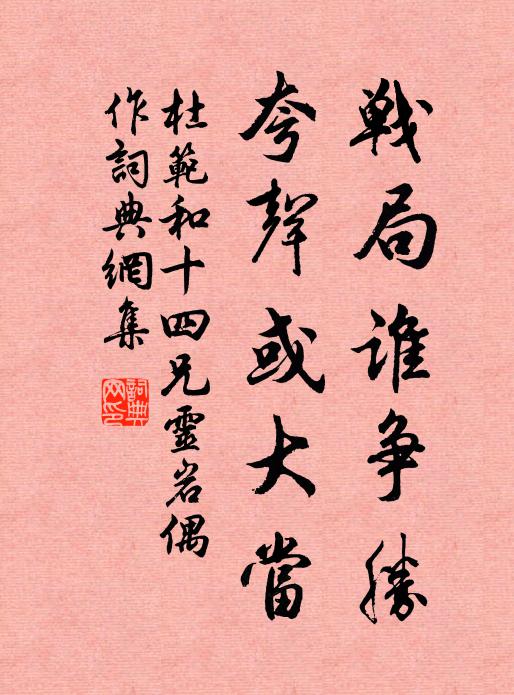 戦局誰争勝
夸聲或大當
杜範和十四兄靈岩偶
作詞典網集
詞典
网印